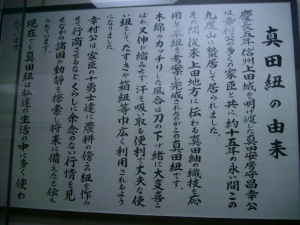 真田紐の由来
慶長五年信州上田城を明け渡した真田安房守昌幸公
は幸村公や多くの家臣と共に約十五年の永い間この
九度山に蟄居して居られました。
その間従来上田地方に伝わる真田紬の織技を応
用し真田紐を考案し完成されたのがこの真田紐です。
木綿のカッチリした風合は刀の下げ緒に大変喜こ
ばれ又伸び縮みせず汗の吸取る便利で丈夫な使
い紐としてたすきや箱紐等巾広く利用されるよう
になりました。
幸村公は家臣の十勇士達に農耕の傍この紐を作ら
せて行商させるなど、くらしに余念のない行情を見
せながら諸国の動静を探索し将来に備えたと伝え
られています。
現在でも真田紐は私達の生活の中に多く使わ
れています。